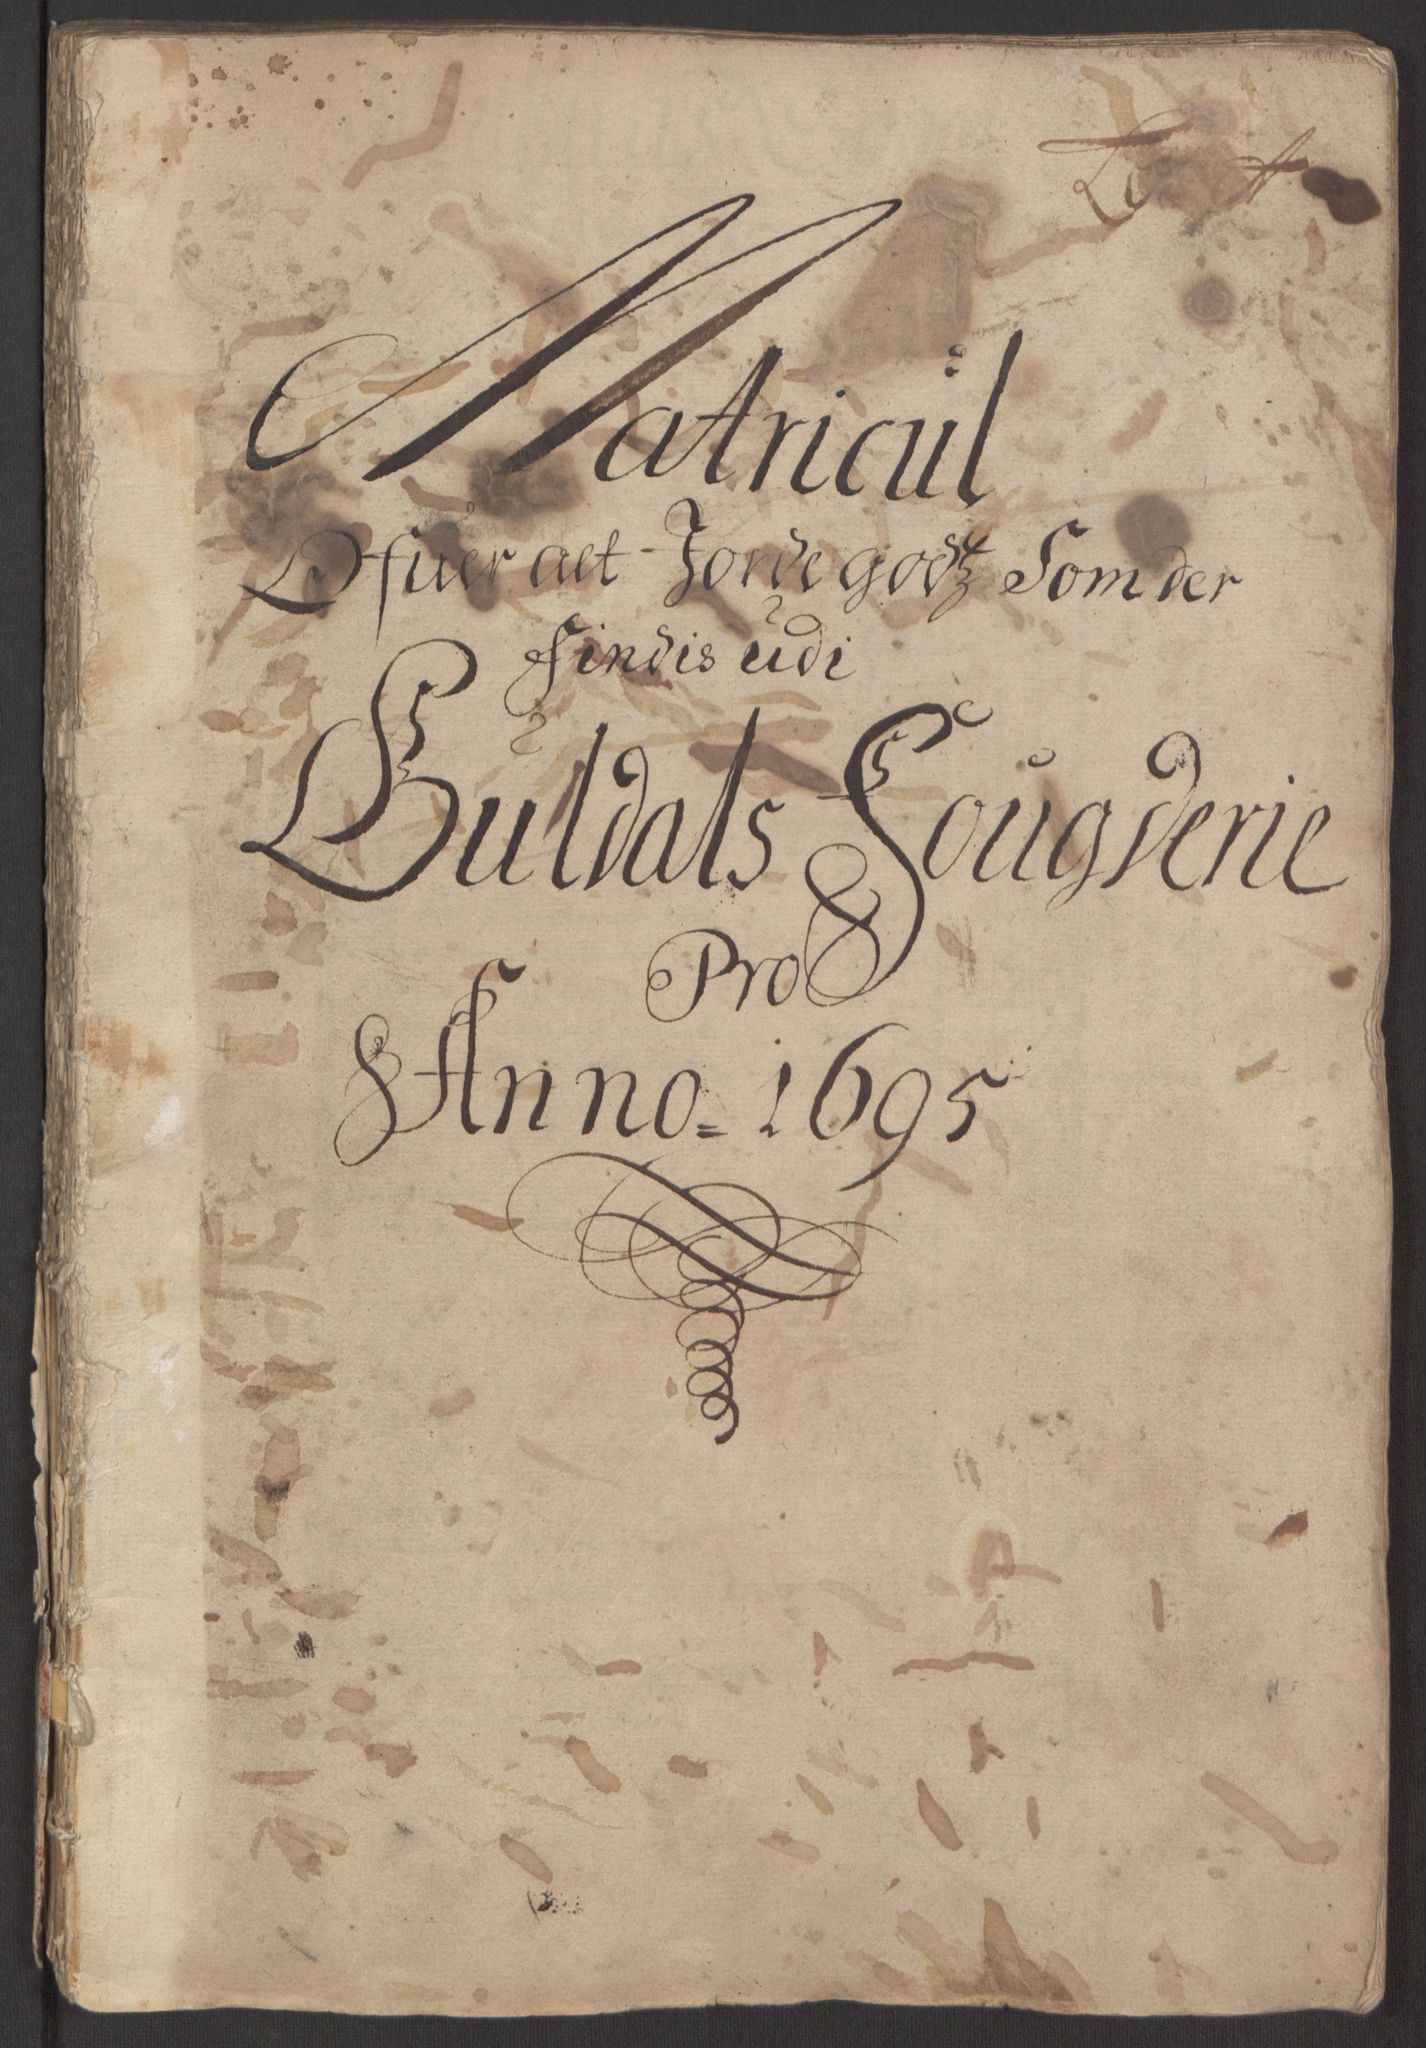 Matricul
Ofuer alt Jordegodtz Som der
findis udi
Guldals Fougderie
Pro
Anno = 1695